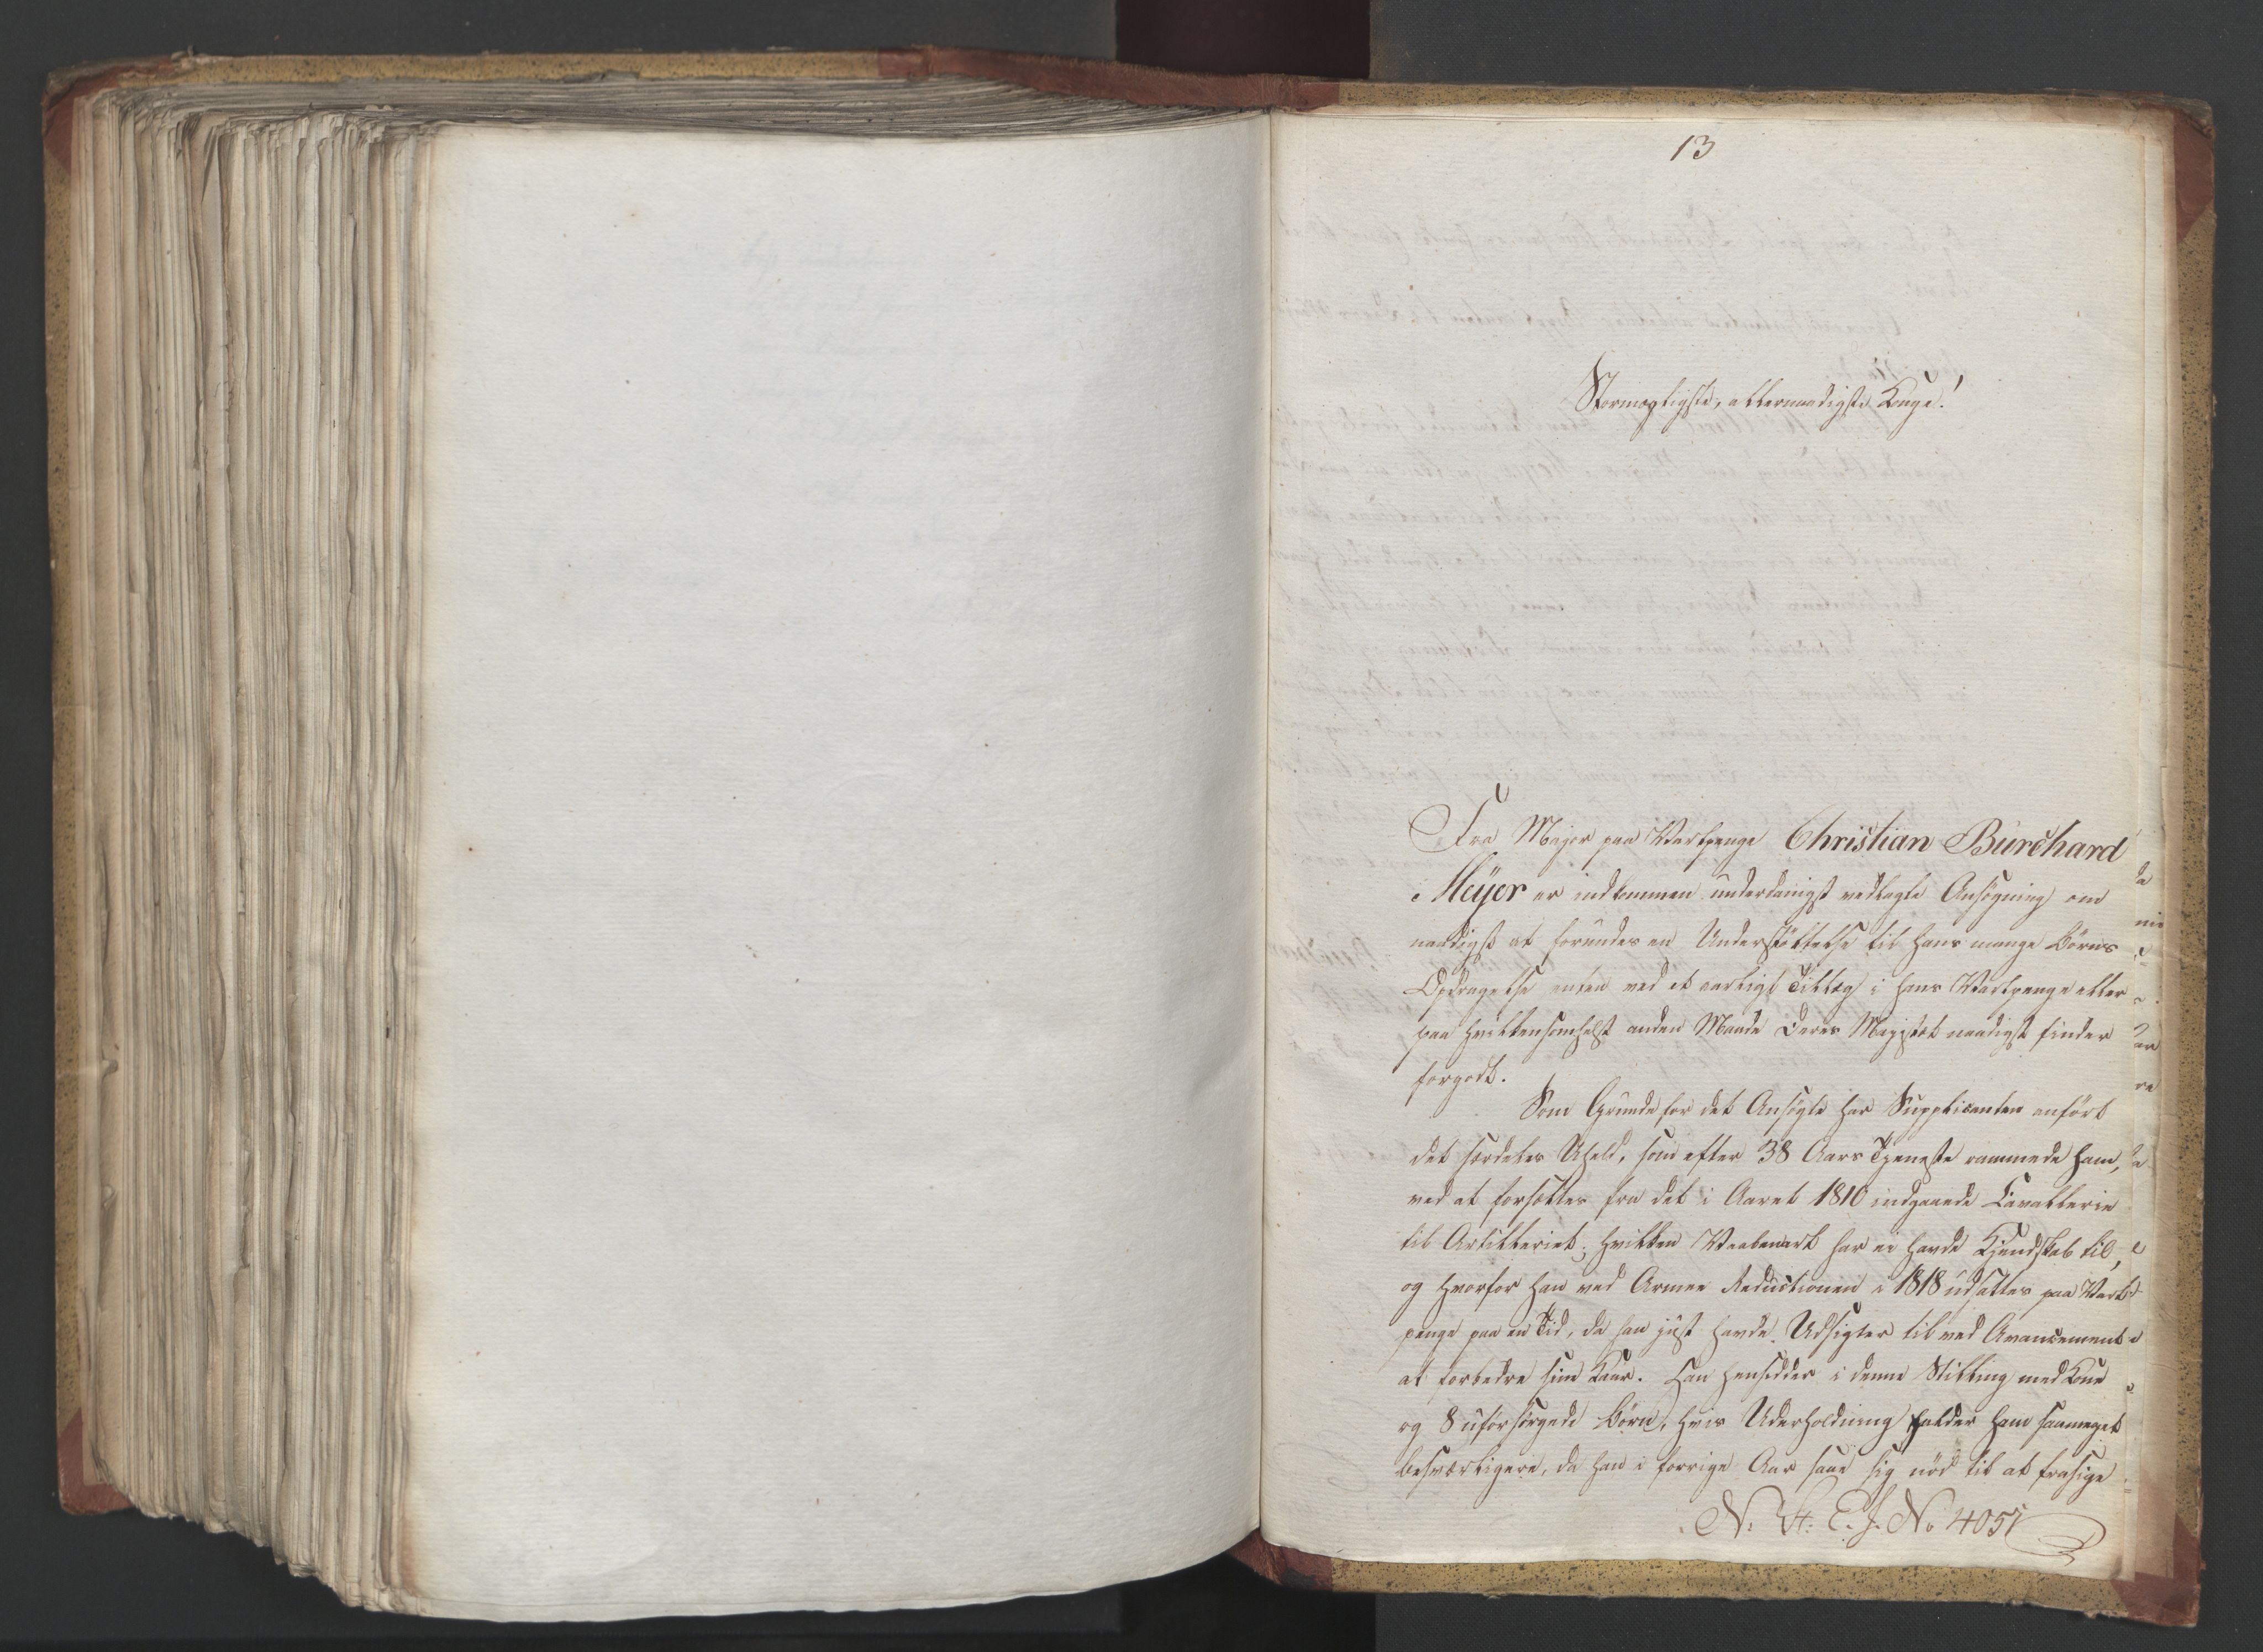 13
Stormægtigste, allernaadigste Konge!
Fra Major paa Vartpenge Christian Burchard
Meÿer er indkommen underdanigst vedlagte Ansögning om
naadigst at forundes en Understöttelse til hans mange Börns
Opdragelse enten ved et aarligt Tillæg i hans Vartpenge eller
paa hvilkensomhelst anden Maade Deres Majestæt naadigst finder
forgodt.
Som Grunde for det Ansögte har Supplicanten anfört
det særdeles Uheld, som efter 38 Aars Tjeneste rammede ham,
ved at forsættes fra det i Aaret 1810 indgaaende Cavallerie
til Artilleriet; hvilken Vaabenart han ei havde Kjendskab til,
og hvorfor han ved Armee Reductionen i 1818 udsattes paa Vart-
penge paa en Tid, da han just havde Udsigter til ved Avancement
at forbedre sine Kaar. Han hensidder i denne Stilling med Kone
og 8 uforsörgede Börn, hvis Underholdning falder ham saameget
besværligere, da han i forrige Aar saae sig nöd til at frasige
N. A. E. J. No 4051